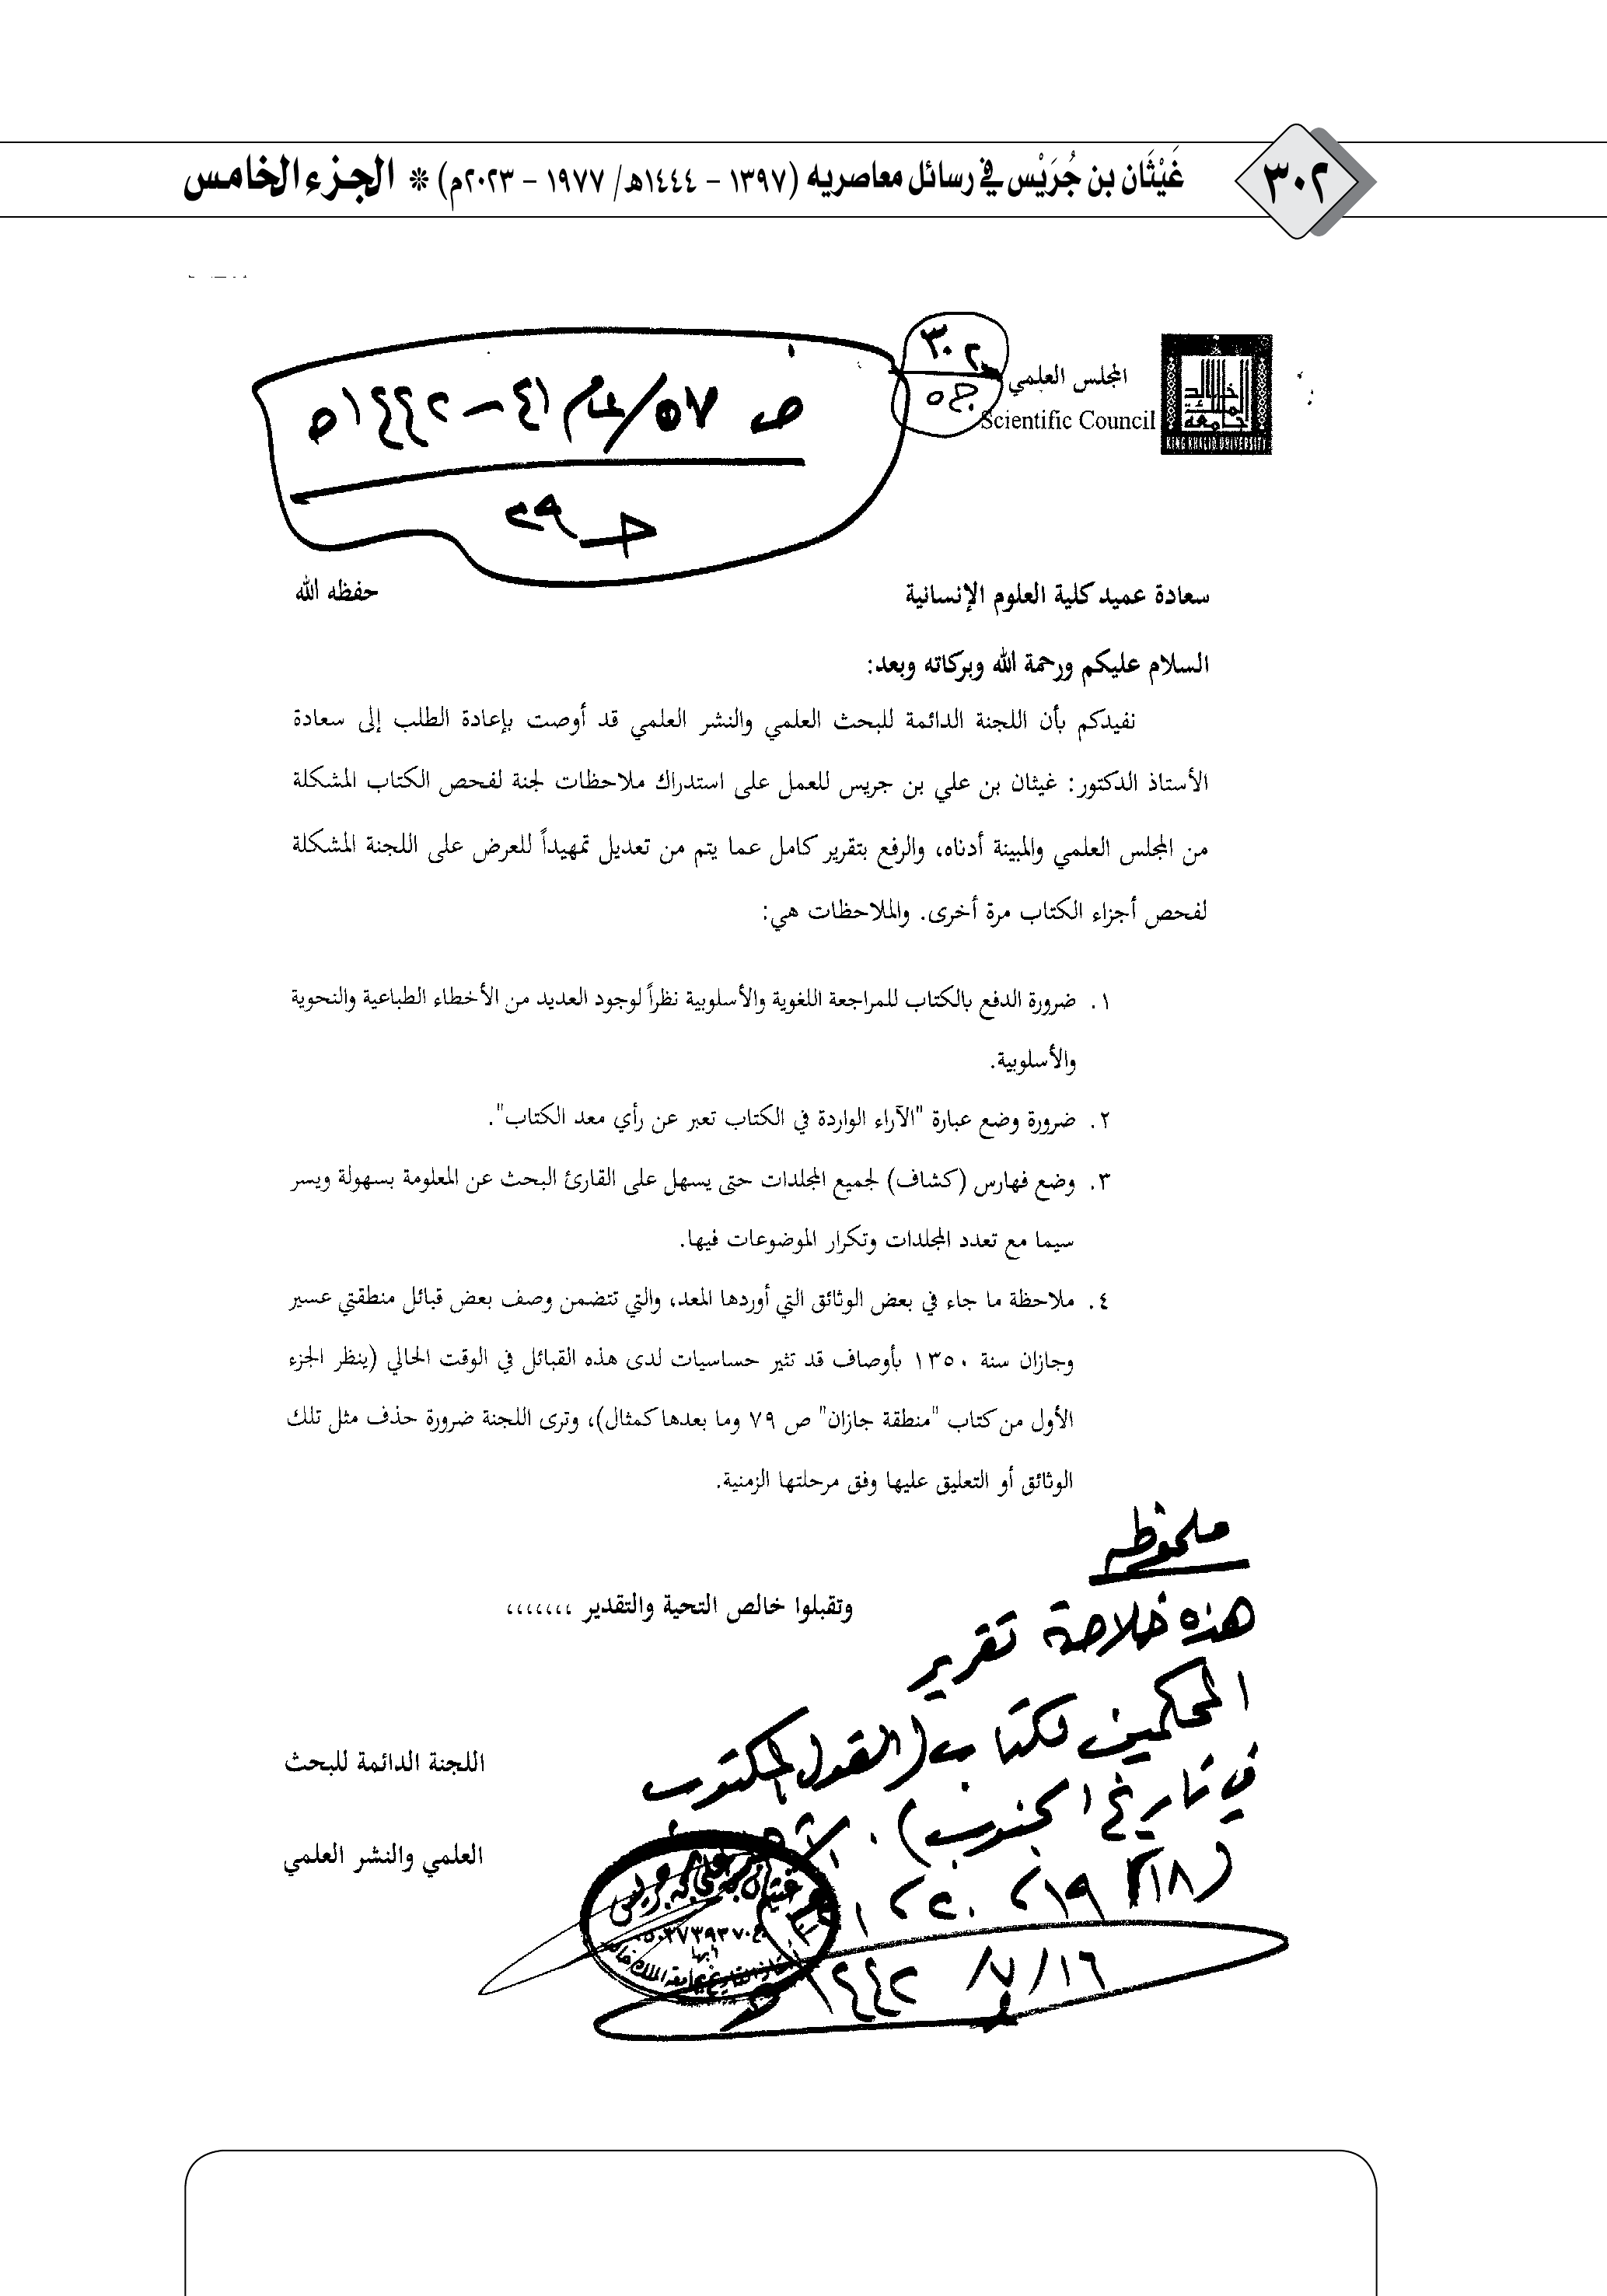 ٣٠٢
غَيْثَان بن جُرَيْس في رسائل معاصريه (١٣٩٧ – ١٤٤٤هـ/ ١٩٧٧ – ٢٠٢٣م) * الجزء الخامس
٣٠٢
ج٥
المجلس العلمي
Scientific Council
KING KHALID UNIVERSITY
ص ٥٧/عام ٤١ – ١٤٤٢ه
ج٢٩
سعادة عميد كلية العلوم الإنسانية حفظه الله
السلام عليكم ورحمة الله وبركاته وبعد:
نفيدكم بأن اللجنة الدائمة للبحث العلمي والنشر العلمي قد أوصت بإعادة الطلب إلى سعادة
الأستاذ الدكتور: غيثان بن علي بن جريس للعمل على استدراك ملاحظات لجنة لفحص الكتاب المشكلة
من المجلس العلمي والمبينة أدناه، والرفع بتقرير كامل عما يتم من تعديل تمهيداً للعرض على اللجنة المشكلة
لفحص أجزاء الكتاب مرة أخرى. والملاحظات هي:
١. ضرورة الدفع بالكتاب للمراجعة اللغوية والأسلوبية نظراً لوجود العديد من الأخطاء الطباعية والنحوية
والأسلوبية.
٢. ضرورة وضع عبارة "الآراء الواردة في الكتاب تعبر عن رأي معد الكتاب".
٣. وضع فهارس (كشاف) لجميع المجلدات حتى يسهل على القارئ البحث عن المعلومة بسهولة ويسر
سيما مع تعدد المجلدات وتكرار الموضوعات فيها.
٤. ملاحظة ما جاء في بعض الوثائق التي أوردها المعد، والتي تتضمن وصف بعض قبائل منطقتي عسير
وجازان سنة ١٣٥٠ بأوصاف قد تثير حساسيات لدى هذه القبائل في الوقت الحالي (ينظر الجزء
الأول من كتاب "منطقة جازان" ص ٧٩ وما بعدها كمثال)، وترى اللجنة ضرورة حذف مثل تلك
الوثائق أو التعليق عليها وفق مرحلتها الزمنية.
وتقبلوا خالص التحية والتقدير ،،،،،،،
اللجنة الدائمة للبحث
العلمي والنشر العلمي
ملحوظه
هذه خلاصة تقرير
المحكمين لكتاب (القول المكتوب
في تاريخ الجنوب).
١٦/٧/١٤٤٢
أبها